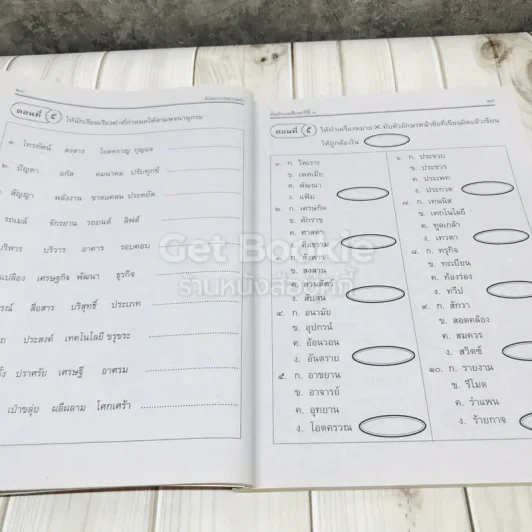 ตอนที่ ๔ ให้นักเรียนเรียงคำที่กำหนดให้ตามพจนานุกรม
๑. โทรทัศน์ สงสาร โอดครวญ กุญแจ
๒. ปัญหา แก้ส คมนาคม ปรับทุกข์
สัญญา พลังงาน ขาดแคลน ประหยัด
รถเมล์ จักรยาน รถยนต์ ลิฟต์
บริหาร บริวาร อาคาร รอบคอบ
เปลือง เศรษฐกิจ พัฒนา ธุรกิจ
สื่อสาร บริสุทธิ์ ประเภท
ประสงค์ เทคโนโลยี ขรุขระ
ปราศรัย เศรษฐี อาศรม
เป่าขลุ่ย ผลีผลาม โศกเศร้า
ตอนที่ ๕ ให้ทำเครื่องหมาย × ทับตัวอักษรหน้าข้อที่เขียนผิดแล้วเขียน
ให้ถูกต้องใน
๑. ก. ไพเราะ
ข. เพคเมีย
ค. พัฒณา
ง. แพ้ม
๒. ก. เศรนกิด
ข. ศักราช
ค. ศาสดา
ง. ศิลธรรม
ก. สังหาร
ข. สงสาน
ค. สงวนสัตว์
ง. สับสน
๔. ก. อนามัย
ข. อุปกรน์
ค. อ้อนวอน
ง. อันตราย
๕. ก. อาขยาน
ข. อาจารย์
ค. อุทยาน
ง. โอดครวณ
๖. ก. ประจวบ
ข. ประชวร
ค. ประเพท
ง. ประกวด
๗. ก. เทนนิส
ข. เทกโนโลยี
ค. ทูลเกล้า
ง. เทวดา
๘. ก. ทรุกิจ
ข. ทะเบียน
ค. ท้องร่อง
ง. ทวีป
๙. ก. สักวา
ข. สอดคล้อง
ค. สมควร
ง. สวิตซ์
๑๐. ก. รายงาน
ข. รีโมต
ค. รำแพน
ง. ร้ายกาจ
Get Bookie
ร้านหนังสือเก็ทบุ๊คกี้